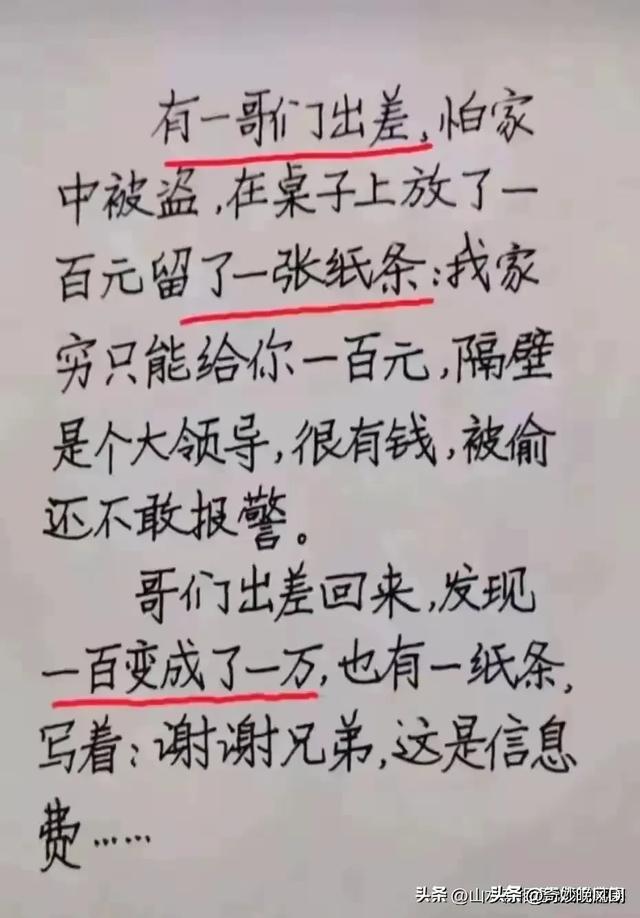 有一哥们出差,怕家
中被盗,在桌子上放了一
百元留了一张纸条:我家
穷只能给你一百元,隔壁
是个大领导,很有钱,被偷
还不敢报警。
哥们出差回来,发现
一百变成了一万,也有一纸条,
写着:谢谢兄弟,这是信息
费……
头条 @山水 头条 @奇妙晚风团